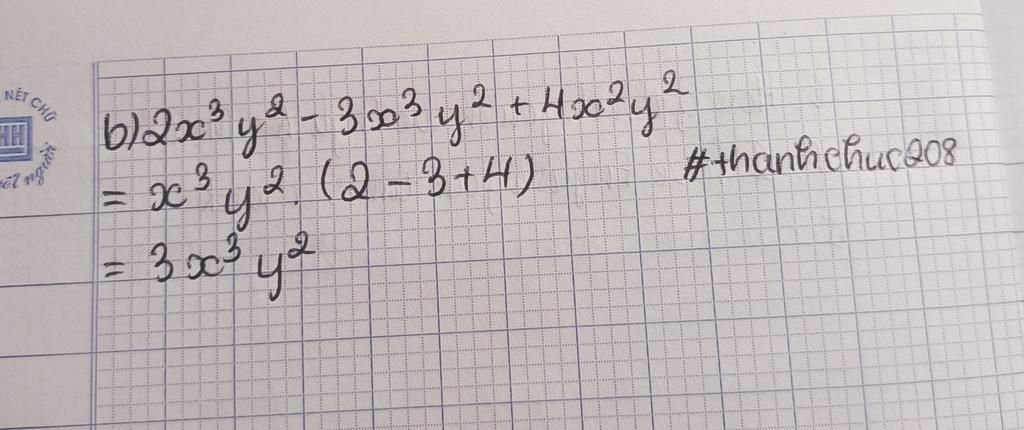 NÉT CHỮ
HH
nết người
b) 2x³y² - 3x³y² + 4x²y²
= x³y². (2 - 3 + 4)
#thanhchuc208
= 3x³y²